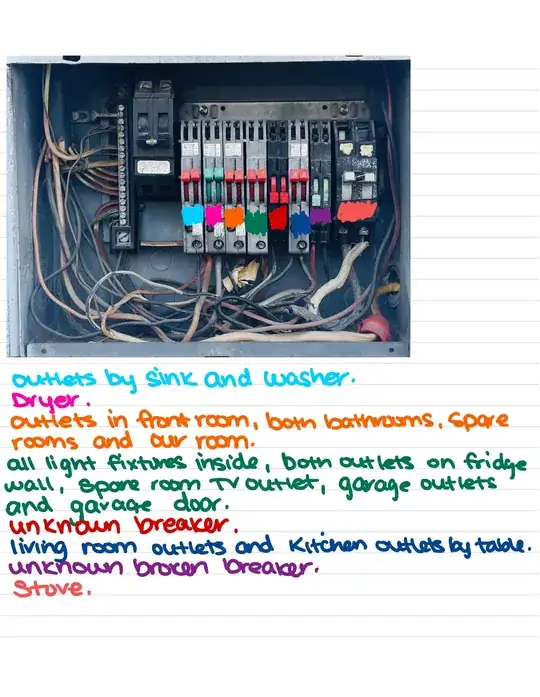 outlets by sink and washer.
Dryer.
outlets in front room, both bathrooms, spare
rooms and our room.
all light fixtures inside, both outlets on fridge
wall, spare room TV outlet, garage outlets
and garage door.
unknown breaker.
living room outlets and kitchen outlets by table.
unknown broken breaker.
Stove.